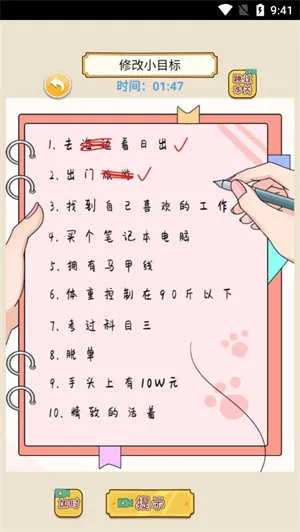 9:41
修改小目标
时间：01:47
1. 去海边看日出
2. 出门旅游
3. 找到自己喜欢的工作
4. 买个笔记本电脑
5. 拥有马甲线
6. 体重控制在90斤以下
7. 考过科目三
8. 脱单
9. 手头上有10W元
10. 精致的活着
提示